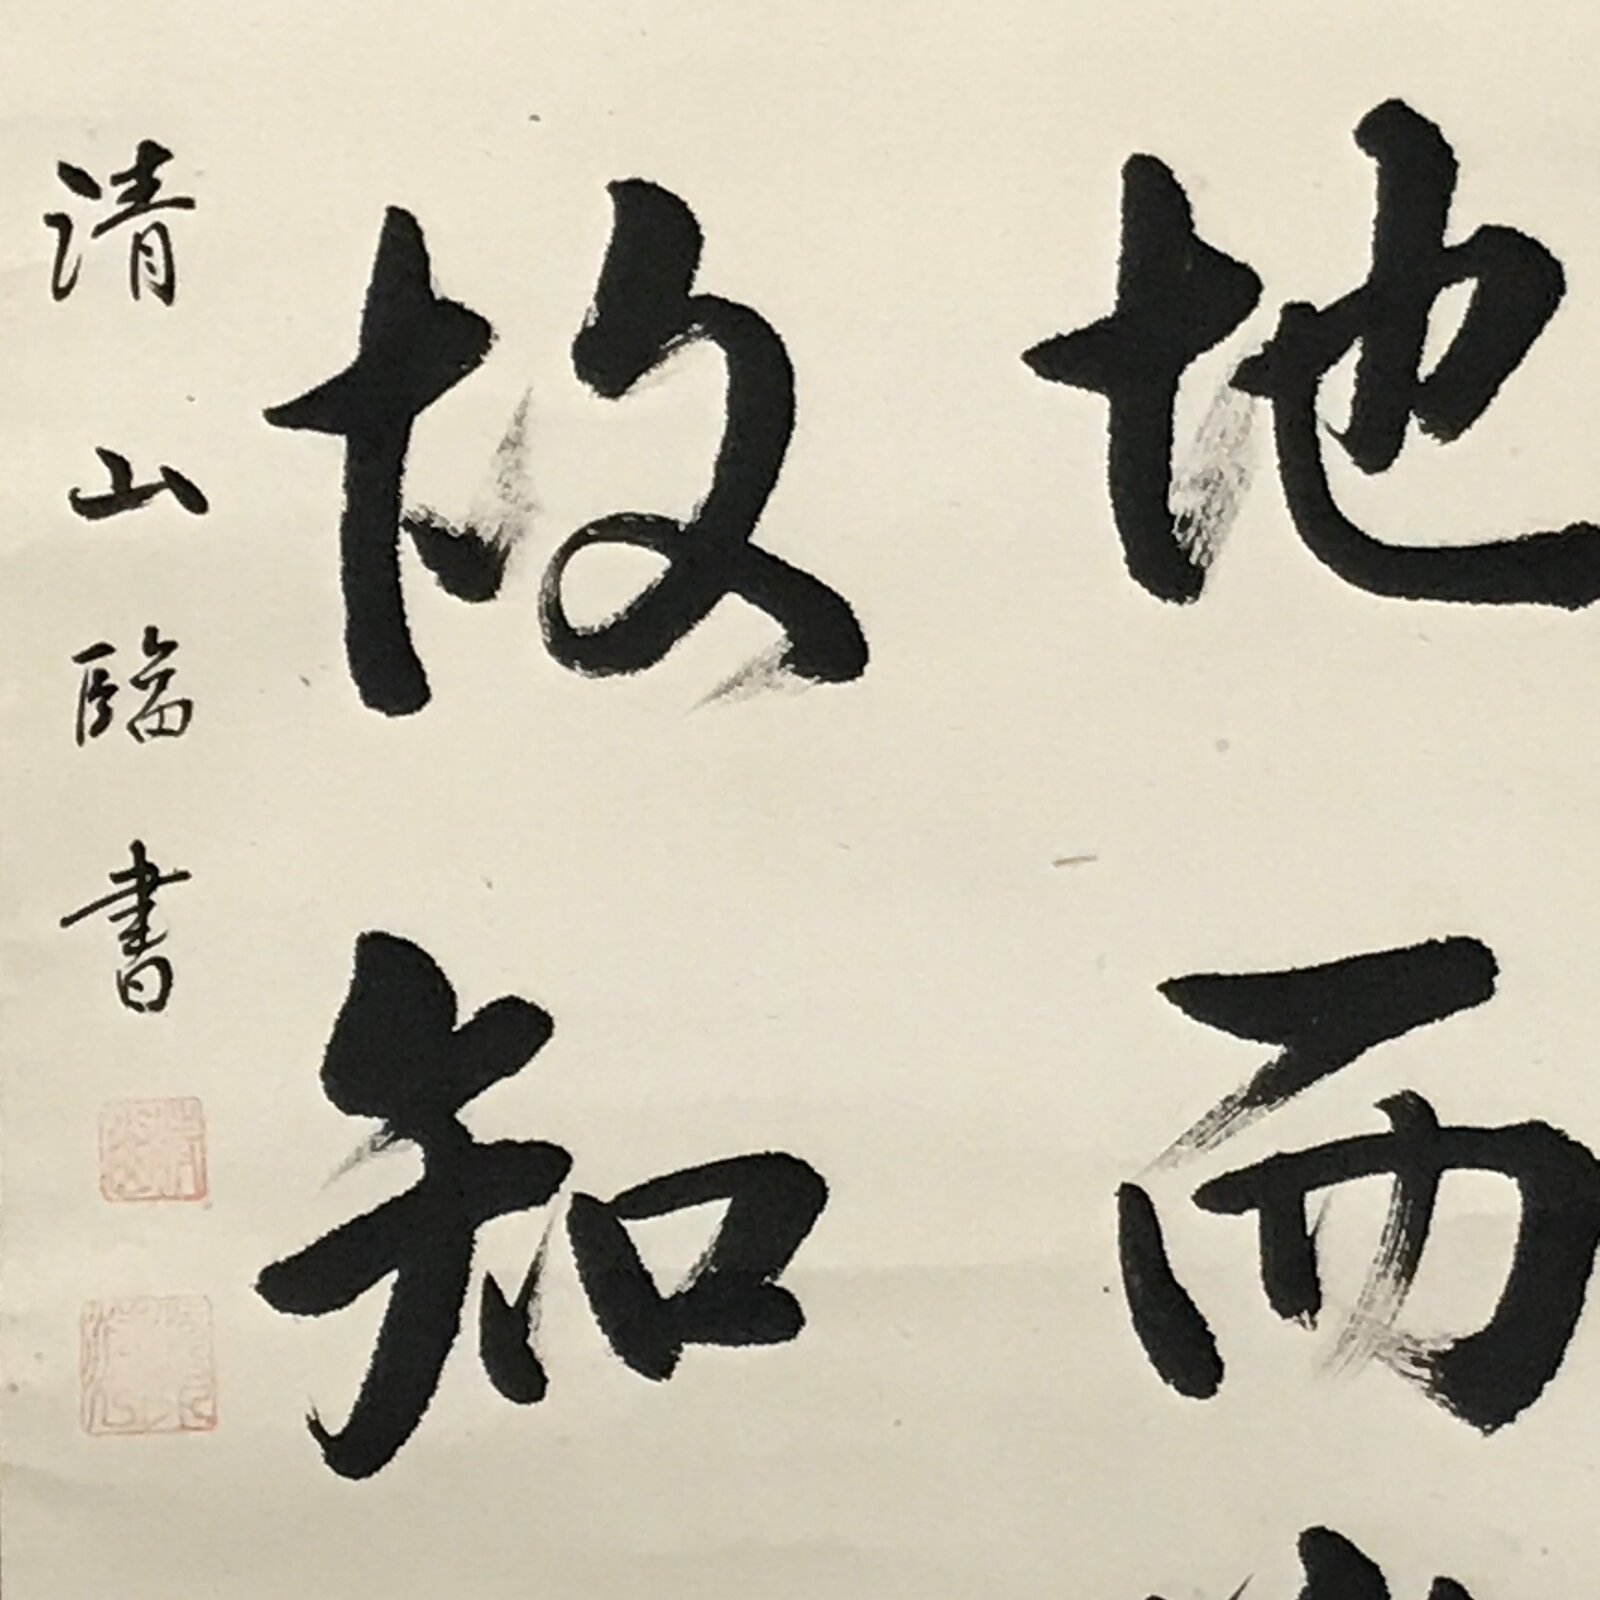 地而
故知
清山臨書